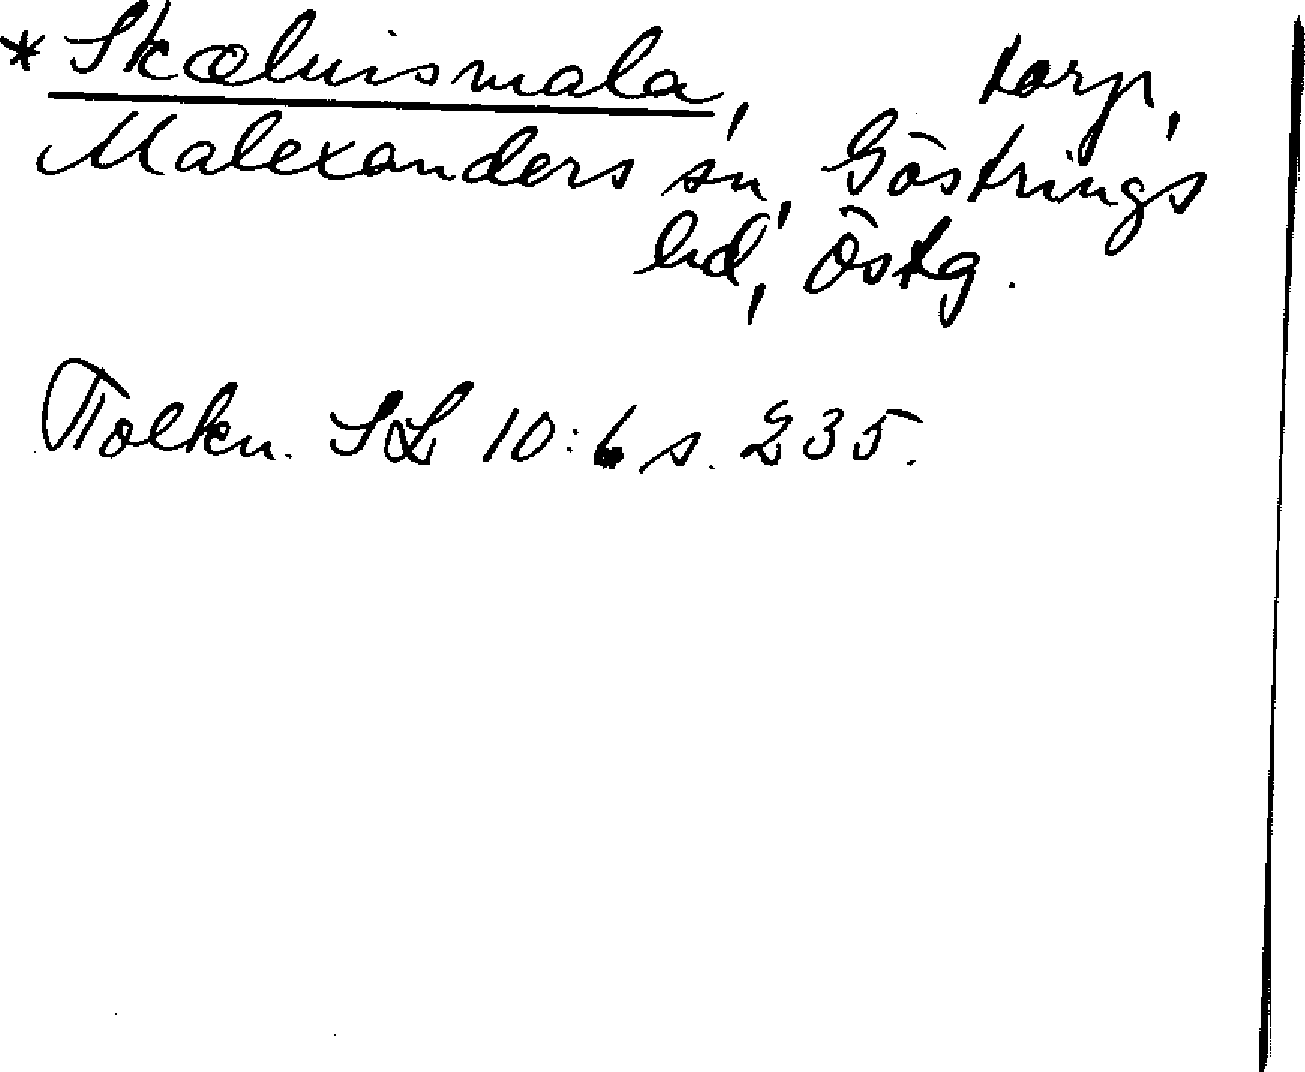 * Skælvismala, torp,
Malexanders sn, Göstrings
hd, Östg.
Tolkn. SL 10:6 s. 235.